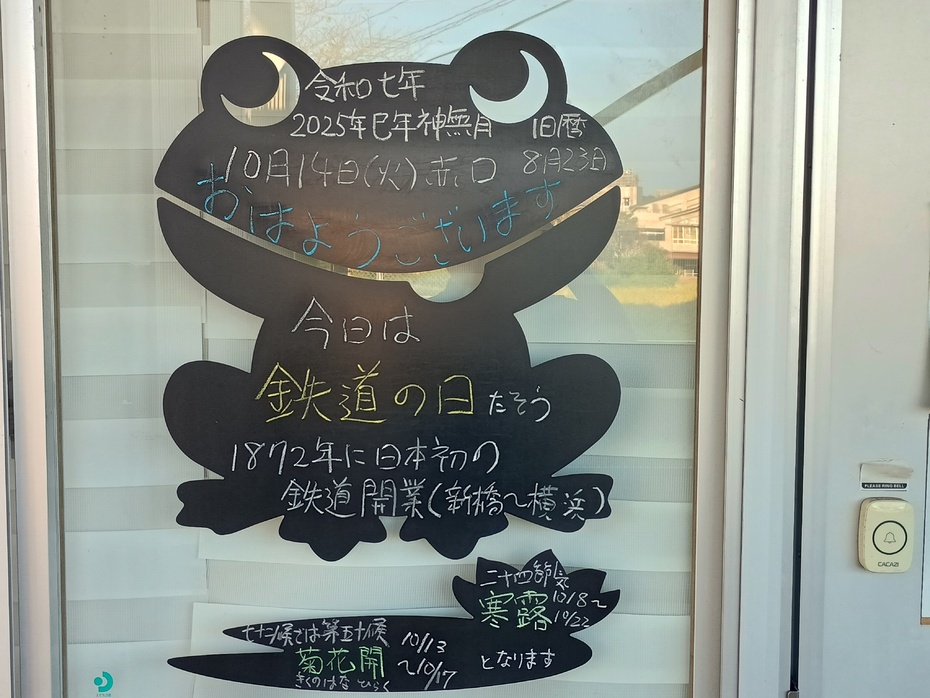 令和七年
2025年巳年神無月 旧暦
10月14日(火)赤口 8月23日
おはようございます
今日は
鉄道の日だそう
1872年に日本初の
鉄道開業(新橋〜横浜)
二十四節気
寒露 10/8〜
10/22
七十二候では第五十候 10/13
菊花開 〜10/17 となります
きくのはな ひらく
PLEASE RING BELL
CACAZI